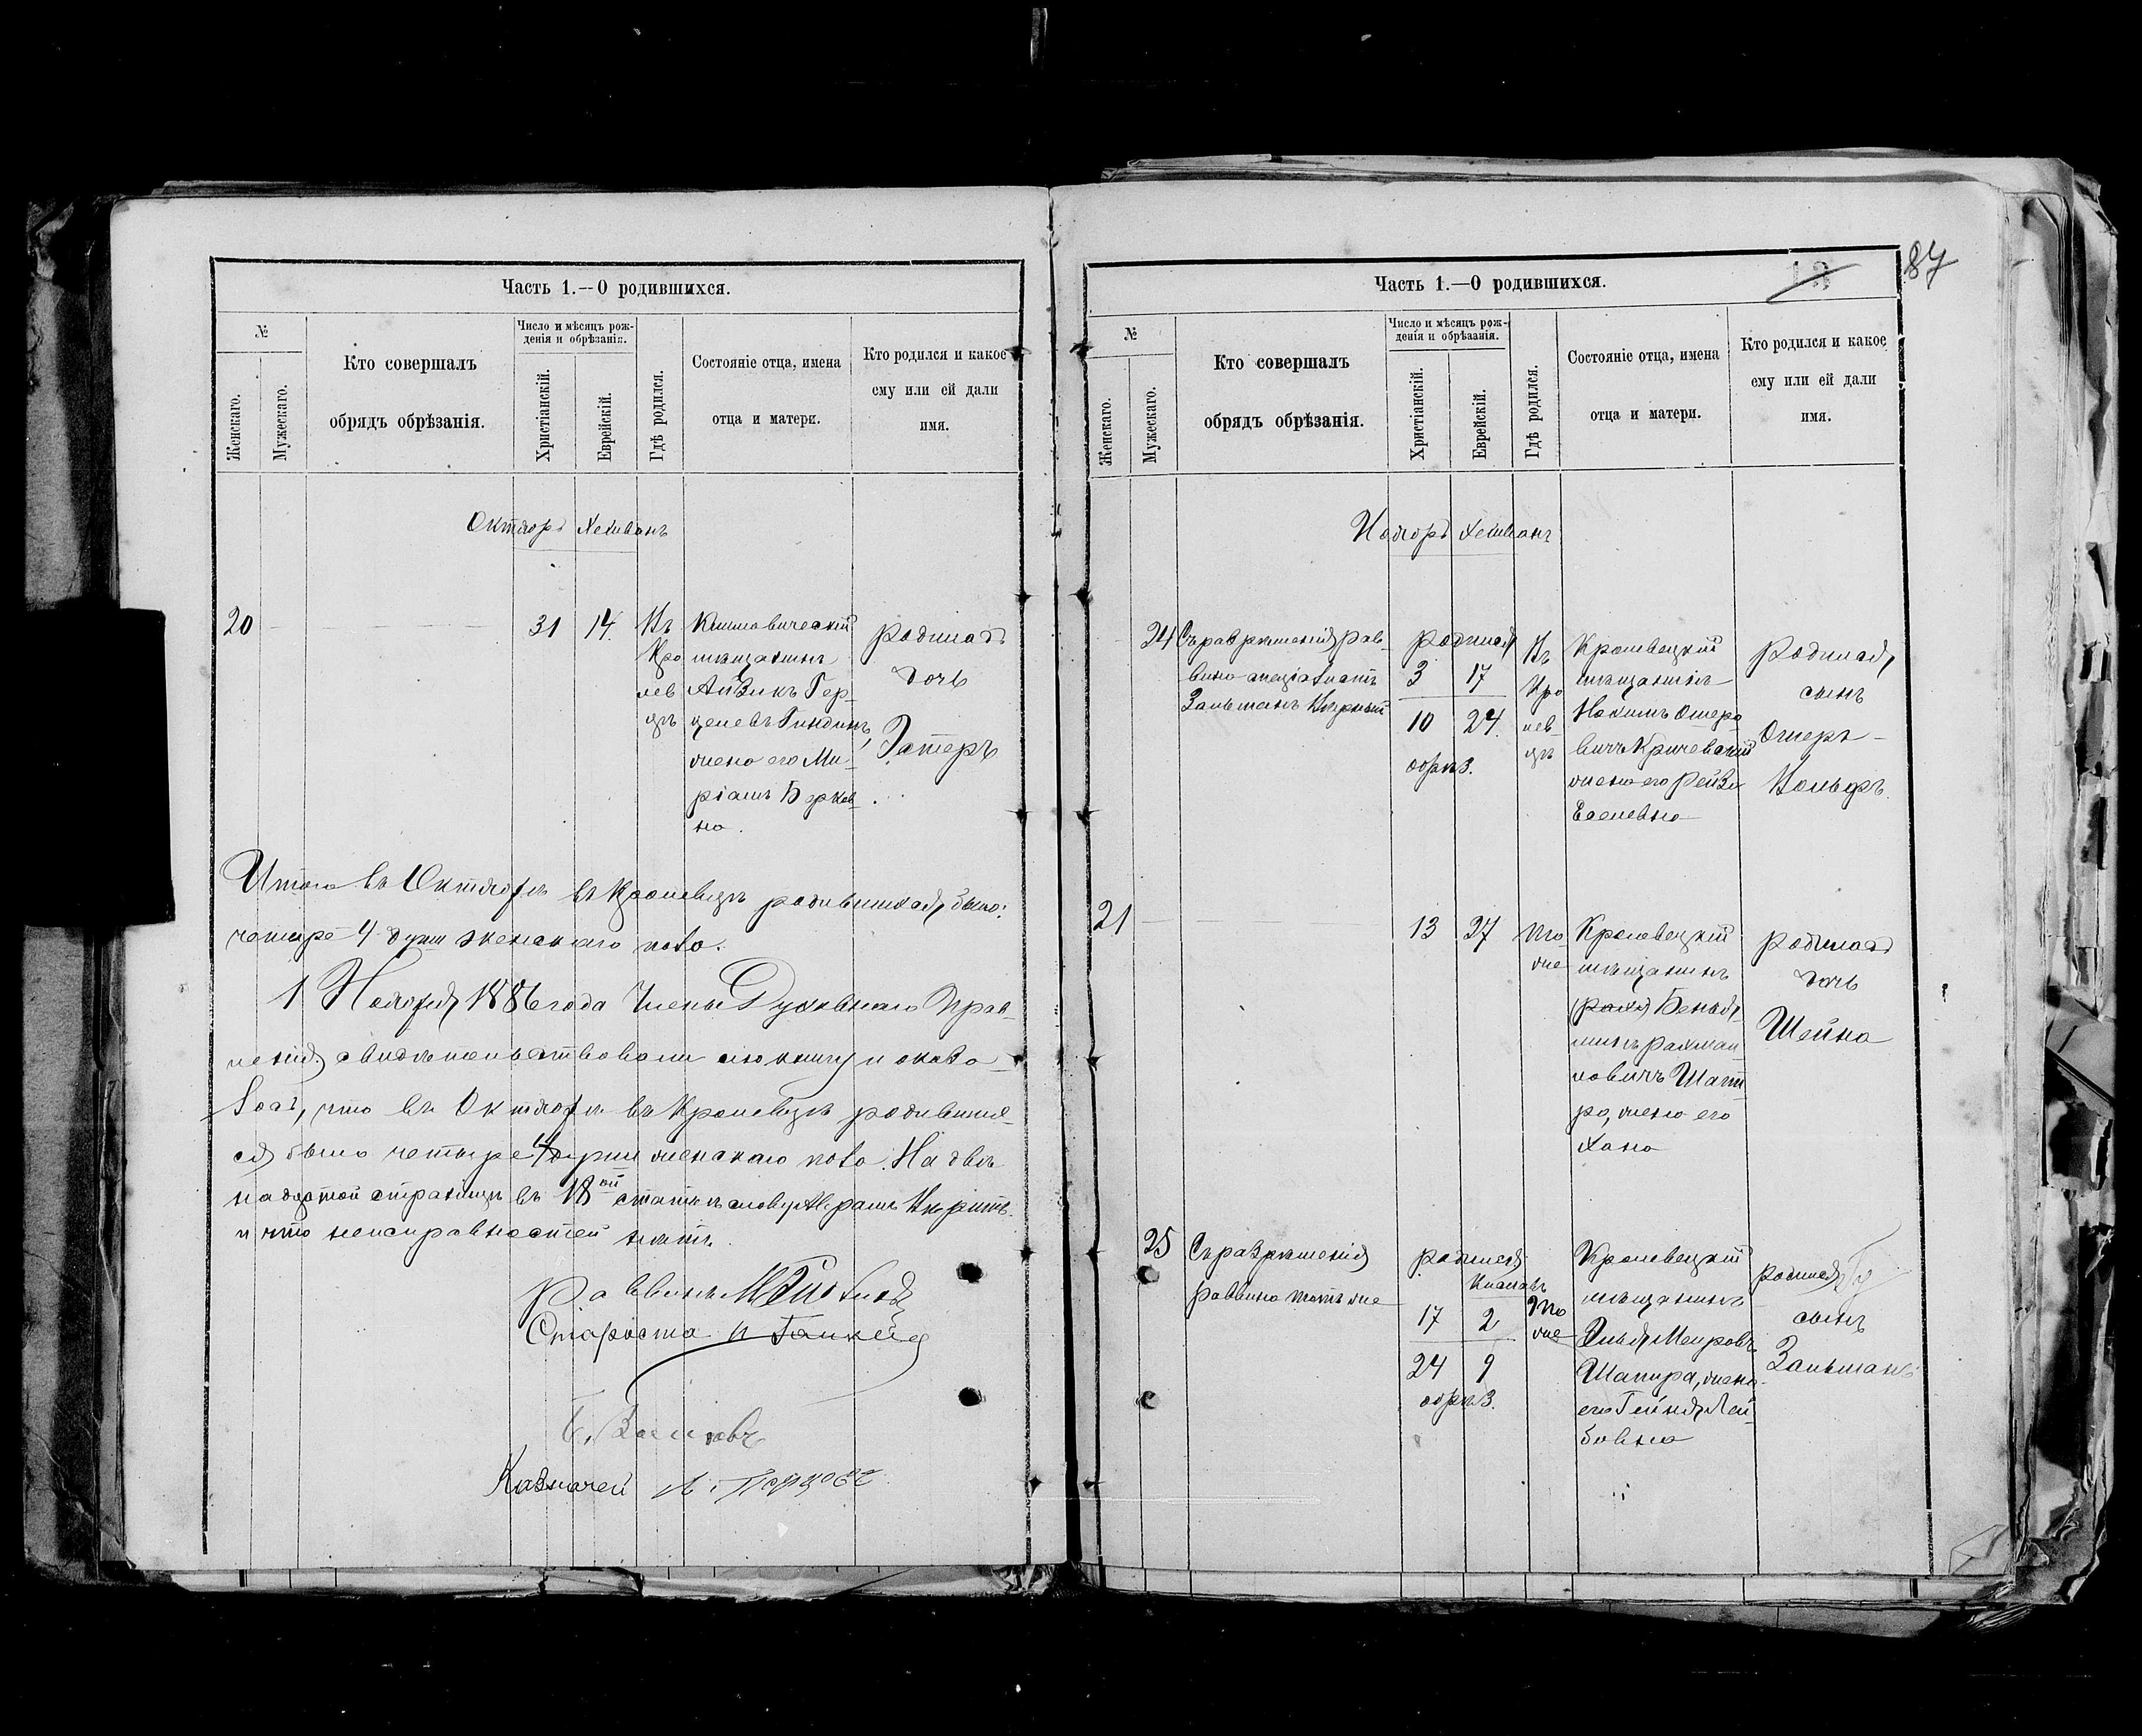 Часть 1.--О родившихся.
№
Женскаго.
Мужескаго.
Кто совершалъ
обрядъ обрѣзанія.
Число и мѣсяцъ рож-
денія и обрѣзанія.
Христіанскій.
Еврейскій.
Гдѣ родился.
Состояніе отца, имена
отца и матери.
Кто родился и какое
ему или ей дали
имя.
Октябрь Хешванъ
20 31 14.
Въ
Кро
лев
цѣ
мѣщанинъ
Айзикъ Гер-
целевъ Гиндинъ,
жена его Ми-
ріамъ Берков-
на.
Родилась
дочь
Эстеръ
Итого въ Октябрѣ въ Кролевцѣ родившихся было:
четыре 4 души женскаго пола.
1 Ноября 1886 года Члены Духовнаго Прав-
ленія свидѣтельствовали сію книгу и оказа-
лось, что въ Октябрѣ въ Кролевцѣ родивших-
ся было четыре 4 души женскаго пола. На двѣ-
надцатой страницѣ въ 18ой статьѣ слову
и что неисправностей нѣтъ.
Раввинъ
Староста
Казначей
87
Часть 1.—О родившихся.
№
Женскаго.
Мужескаго.
Кто совершалъ
обрядъ обрѣзанія.
Число и мѣсяцъ рож-
денія и обрѣзанія.
Христіанскій.
Еврейскій.
Гдѣ родился.
Состояніе отца, имена
отца и матери.
Кто родился и какое
ему или ей дали
имя.
Ноябрь Хешванъ
24
Съ разрѣшенія рав-
вина спеціалистъ
Зальманъ
родился
3 17
10 24.
обрѣз.
Въ
Кро
лев
цѣ
Кролевецкій
мѣщанинъ
Нохимъ Ошеро
вичъ Кричевскій
жена его Рейза
Еселевна
Родился
сынъ
Ошеръ-
Вольфъ.
21 13 27
то
же
Кролевецкій
мѣщанинъ
Беньѧ-
минъ Рахмаи-
ловичъ Шапи
ро, жена его
Хана
родилась
дочь
Шейна
25
Съ разрѣшенія
раввина тотъ же
родился
Кислевъ
17 2
24 9
обрѣз.
то
же
Кролевецкій
мѣщанинъ
Элья Меировъ
Шапира, жена
его Гейня Лей
бовна
родился
сынъ
Зальманъ